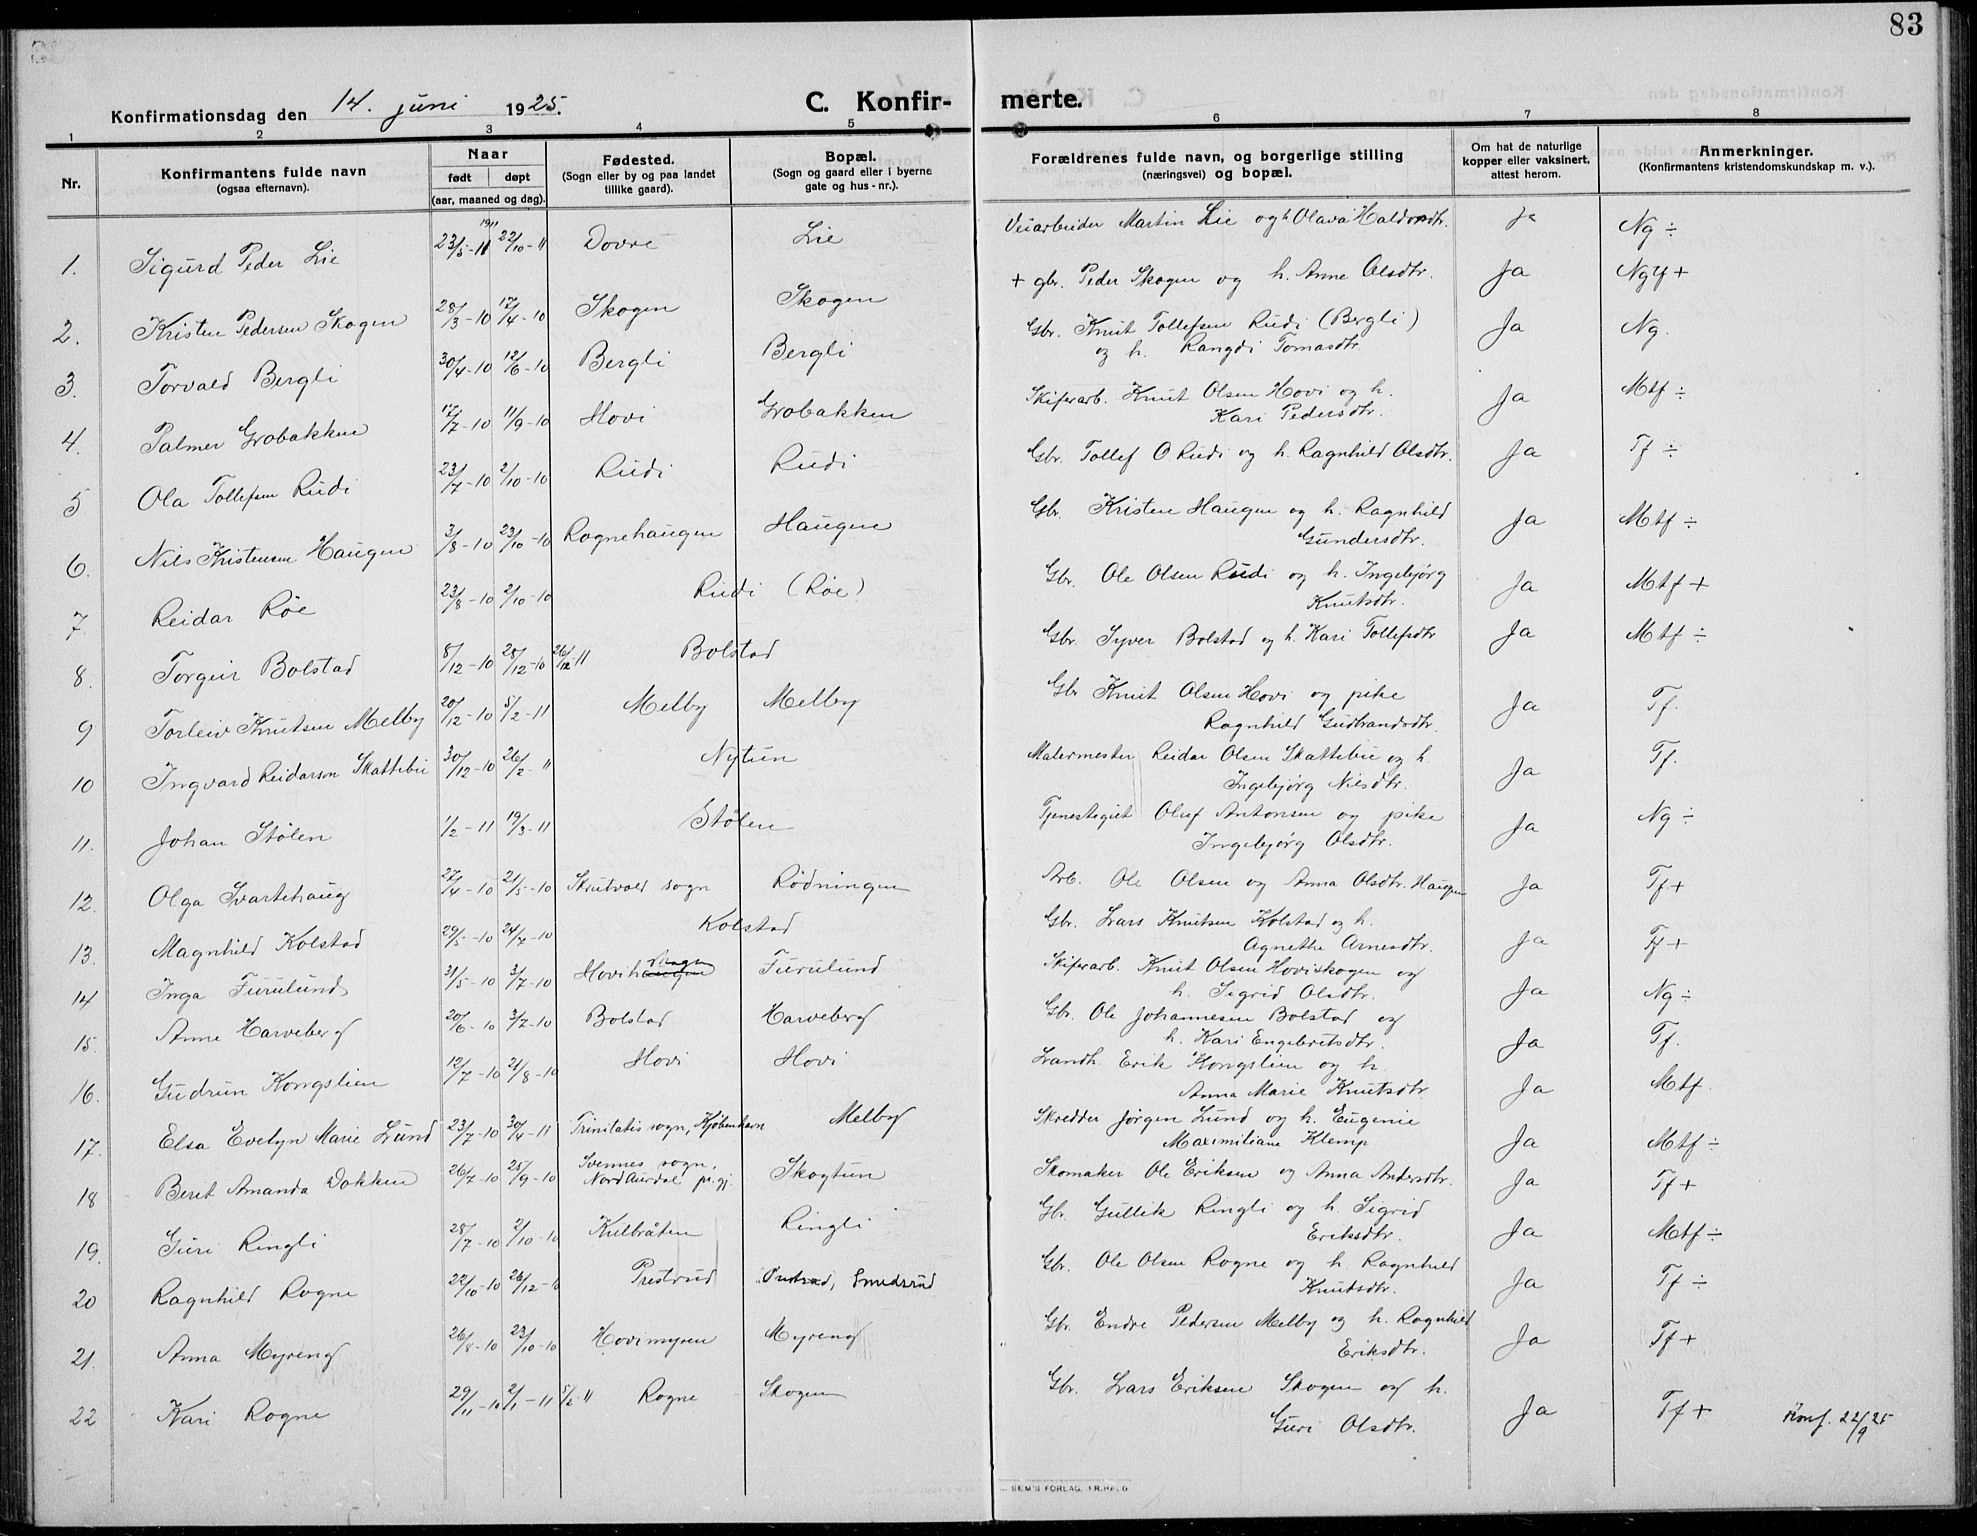 83
Konfirmationsdag den 14. juni 1925.
C. Konfir- merte.
1 2 3 4 5 6 7 8
Nr.
Konfirmantens fulde navn
(ogsaa efternavn).
Naar
født døpt
(aar, maaned og dag).
Fødested.
(Sogn eller by og paa landet
tillike gaard).
Bopæl.
(Sogn og gaard eller i byerne
gate og hus-nr.).
Forældrenes fulde navn, og borgerlige stilling
(næringsvei) og bopæl.
Om hat de naturlige
kopper eller vaksinert,
attest herom.
Anmerkninger.
(Konfirmantens kristendomskundskap m. v.).
1911
1. Sigurd Peder Lie 23/5-11 22/10-11 Dovre Lie Veiarbeider Martin Lie og h Olava Haldorsdtr. Ja Ng ÷
2. Kristen Pedersen Skogen 28/3-10 17/4-10 Skogen Skogen + gbr. Peder Skogen og h. Anne Olsdtr. Ja Ngtf +
3. Torvald Bergli 30/4-10 12/6-10 Bergli Bergli Gbr. Knut Tollefsen Rudi (Bergli)
og h. Rangdi Tomasdtr Ja Ng.
4. Palmer Grobakken 17/7-10 11/9-10 Hovi Grobakken Skiferarb. Knut Olsen Hovi og h.
Kari Pedersdtr. Ja Mtf ÷
5 Ola Tollefsen Rudi 23/7-10 2/10-10 Rudi Rudi Gbr. Tollef O Rudi og h. Ragnhild Olsdtr. Ja Tf ÷
6. Nils Kristensen Haugen 3/8-10 23/10-10 Rognehaugen Haugen Gbr. Kristen Haugen og h. Ragnhild
Gundersdtr. Ja Mtf ÷
7. Reidar Røe 23/8-10 2/10-10 Rudi (Røe) Gbr. Ole Olsen Rudi og h. Ingebjørg
Knutsdtr. Ja Mtf +
8. Torgeir Bolstad 8/12-10 28/12-10 26/12-11 Bolstad Gbr. Syver Bolstad og h. Kari Tollefsdtr Ja Mtf ÷
9 Torleiv Knutsen Melby 20/12-10 5/2-11 Melby Melby Gbr Knut Olsen Hovi og pike
Ragnhild Gudbrandsdtr. Ja Tf.
10 Ingvard Reidarson Skattebu 30/12-10 26/2-11 Nytun Malermester Reidar Olsen Skattebu og h.
Ingebjørg Nilsdtr. Ja Tf.
11. Johan Stølen 1/2-11 19/3-11 Stølen Tjenestegut Oluf Antonsen og pike
Ingebjørg Olsdtr. Ja Ng ÷
12. Olga Svartehaug 27/4-10 21/5-10 Skrutvold sogn Rødningen Arb. Ole Olsen og Anna Olsdtr. Haugen Ja Tf +
13. Magnhild Kolstad 29/5-10 24/7-10 Kolstad Gbr. Lars Knutsen Kolstad og h.
Agnethe Arnesdtr. Ja Tf +
14 Inga Furulund 31/5-10 3/7-10 Hovihaugen skogen Furulund Skiferarb. Knut Olsen Hoviskogen og
h. Sigrid Olsdtr. Ja Ng ÷
15. Anne Harveberg 20/6-10 3/7-10 Bolstad Harveberg Gbr. Ole Johannesen Bolstad og
h. Kari Engebretsdtr. Ja Tf.
16. Gudrun Kongslien 12/7-10 21/8-10 Hovi Hovi Landh. Erik Kongslien og h.
Anna Marie Knutsdtr Ja Mtf.
17. Elsa Evelyn Marie Lund 23/7-10 30/4-11 Trinitatis sogn, Kjøbenhavn Melby Skredder Jørgen Lund og h. Eugenie
Maximiliane Klemp Ja Mtf ÷
18 Berit Amanda Dokken 26/7-10 25/9-10 Svennes sogn,
Nord Aurdal pr.gj. Skogtun Skomaker Ole Eriksen og Anna Andersdtr. Ja Tf +
19. Guri Ringli 28/7-10 2/10-10 Kulbråten Ringli Gbr. Gullik Ringli og h. Sigrid
Eriksdtr. Ja Mtf ÷
20 Ragnhild Rogne 22/10-10 26/12-10 Prestrud Prestrud, Smedsrud Gbr. Ole Olsen Rogne og h. Ragnhild
Knutsdtr. Ja Tf ÷
21. Anna Myreng 26/8-10 23/10-10 Hovimyren Myreng Gbr. Endre Pedersen Melby og h. Ragnhild
Eriksdtr. Ja Tf +
22 Kari Rogne 29/11-10 2/1-11 5/2-11 Rogne Skogen Gbr. Lars Eriksen Skogen og h.
Guri Olsdtr. Ja Tf + Konf. 22/9 25
SEM'S FORLAG, FR.HALD.